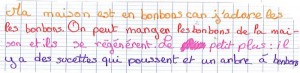 Ma maison est en bonbons car j'adore les
les bonbons. On peut manger les bonbons de la mai-
son et ils se régénèrent. Le petit plus : il
y a des sucettes qui poussent et un arbre à bonbon